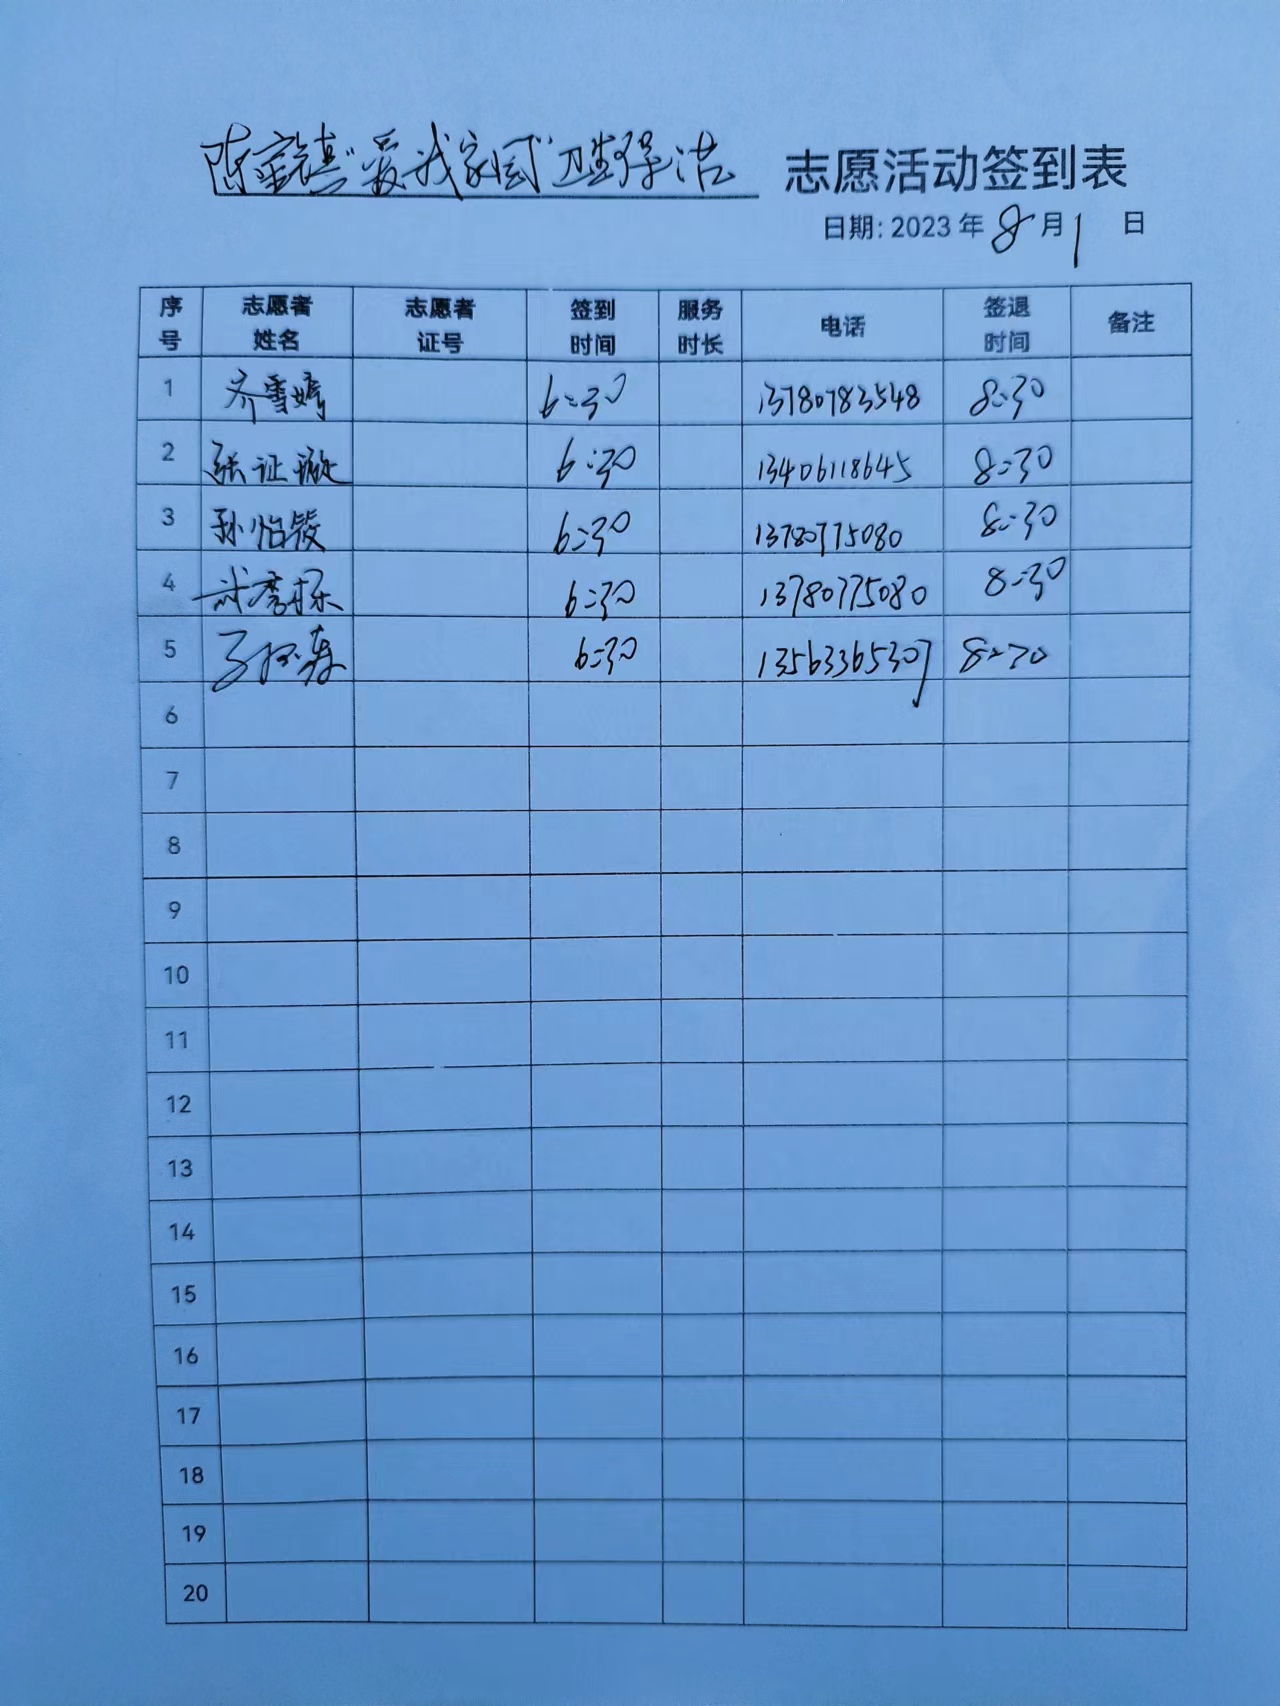 "爱我家园"卫生保洁 志愿活动签到表
日期: 2023 年 8 月 1 日
序号 志愿者姓名 志愿者证号 签到时间 服务时长 电话 签退时间 备注
1 齐雪婷 6:30 13780783548 8:30
2 张证 6:30 13406118645 8:30
3 孙怡筱 6:30 13780775080 8:30
4 6:30 13780775080 8:30
5 6:30 13563365307 8:30
6
7
8
9
10
11
12
13
14
15
16
17
18
19
20